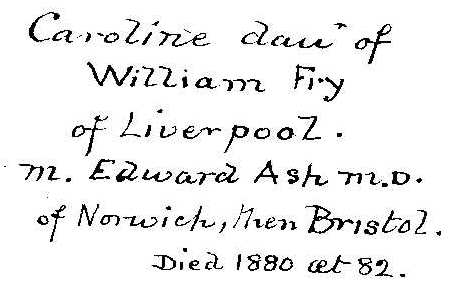 Caroline dauʳ of
William Fry
of Liverpool.
m. Edward Ash M.D.
of Norwich, then Bristol.
Died 1880 æt 82.